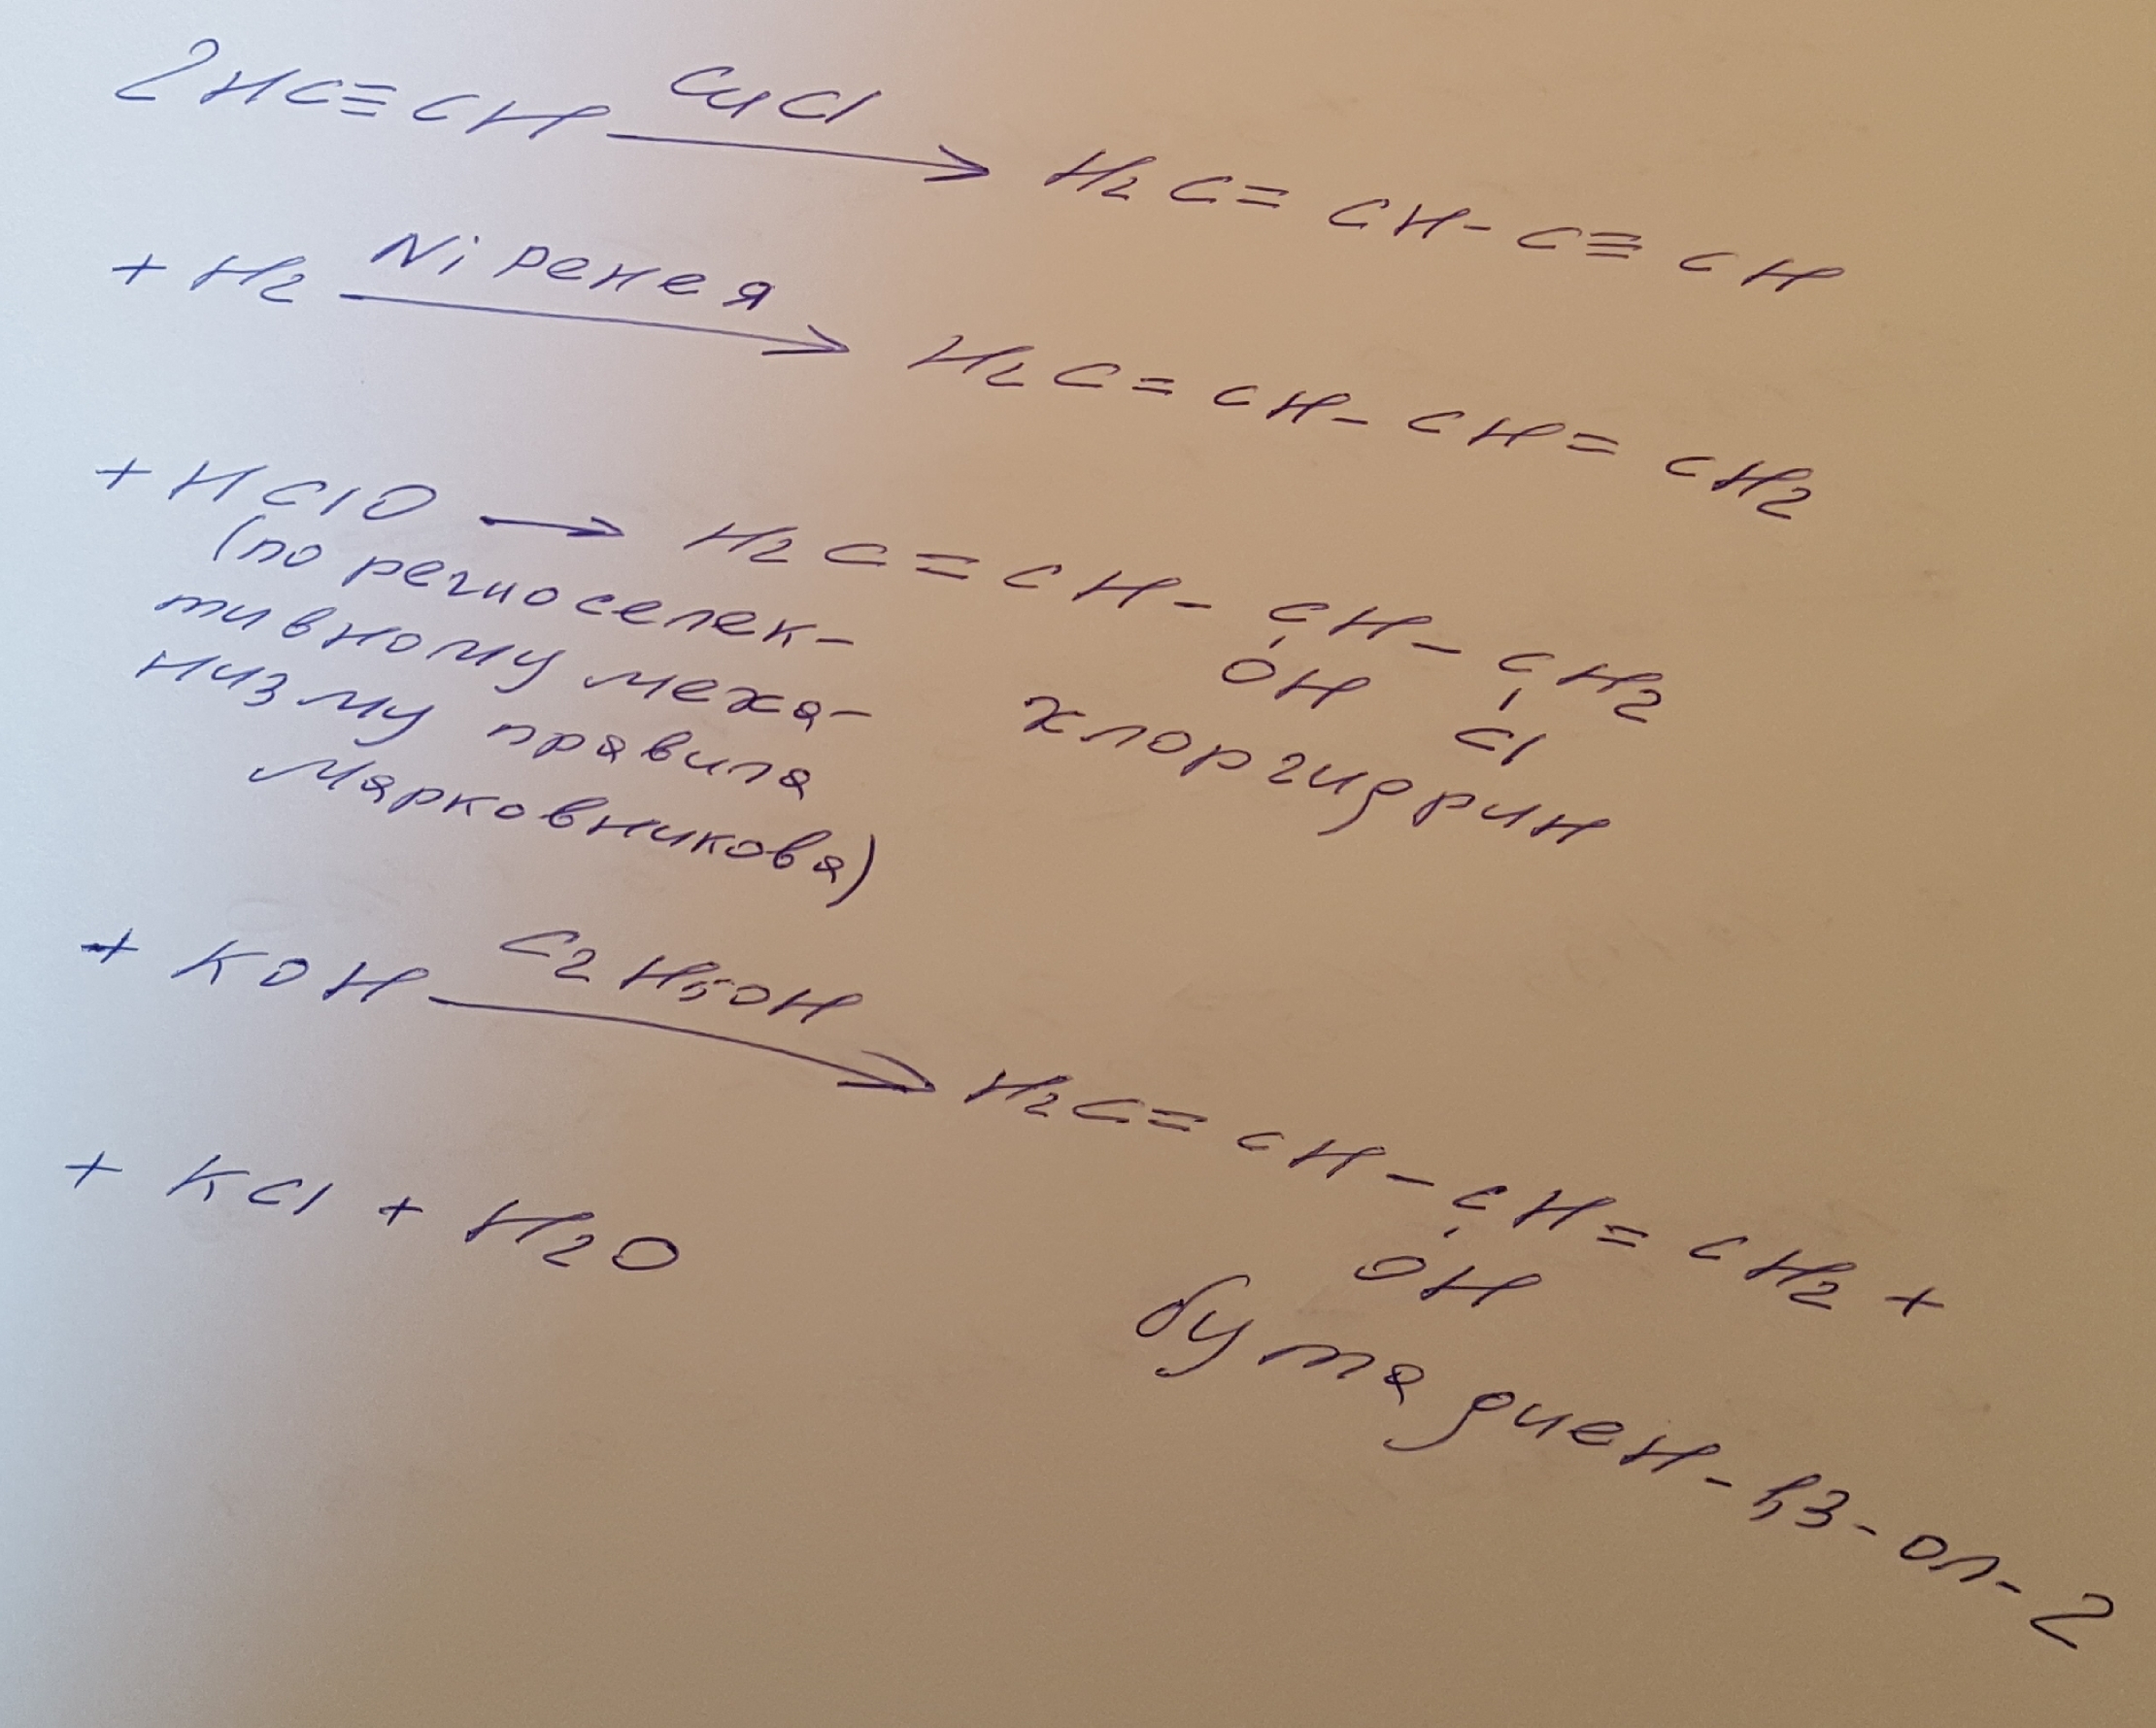 2HC≡CH CuCl → H2C=CH-C≡CH
+ H2 Ni Ренея → H2C=CH-CH=CH2
+ HClO → H2C=CH-CH-CH2
OH Cl
(по региоселек-
тивному меха-
низму правила
Марковникова)
хлоргидрин
+ KOH C2H5OH → H2C=CH-CH=CH2 +
OH
+ KCl + H2O
бутадиен-1,3-ол-2